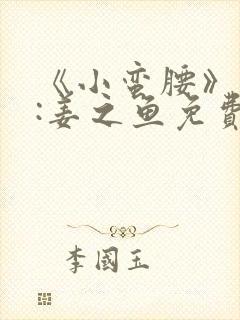 《小蛮腰》
:姜之鱼免費
李國玉